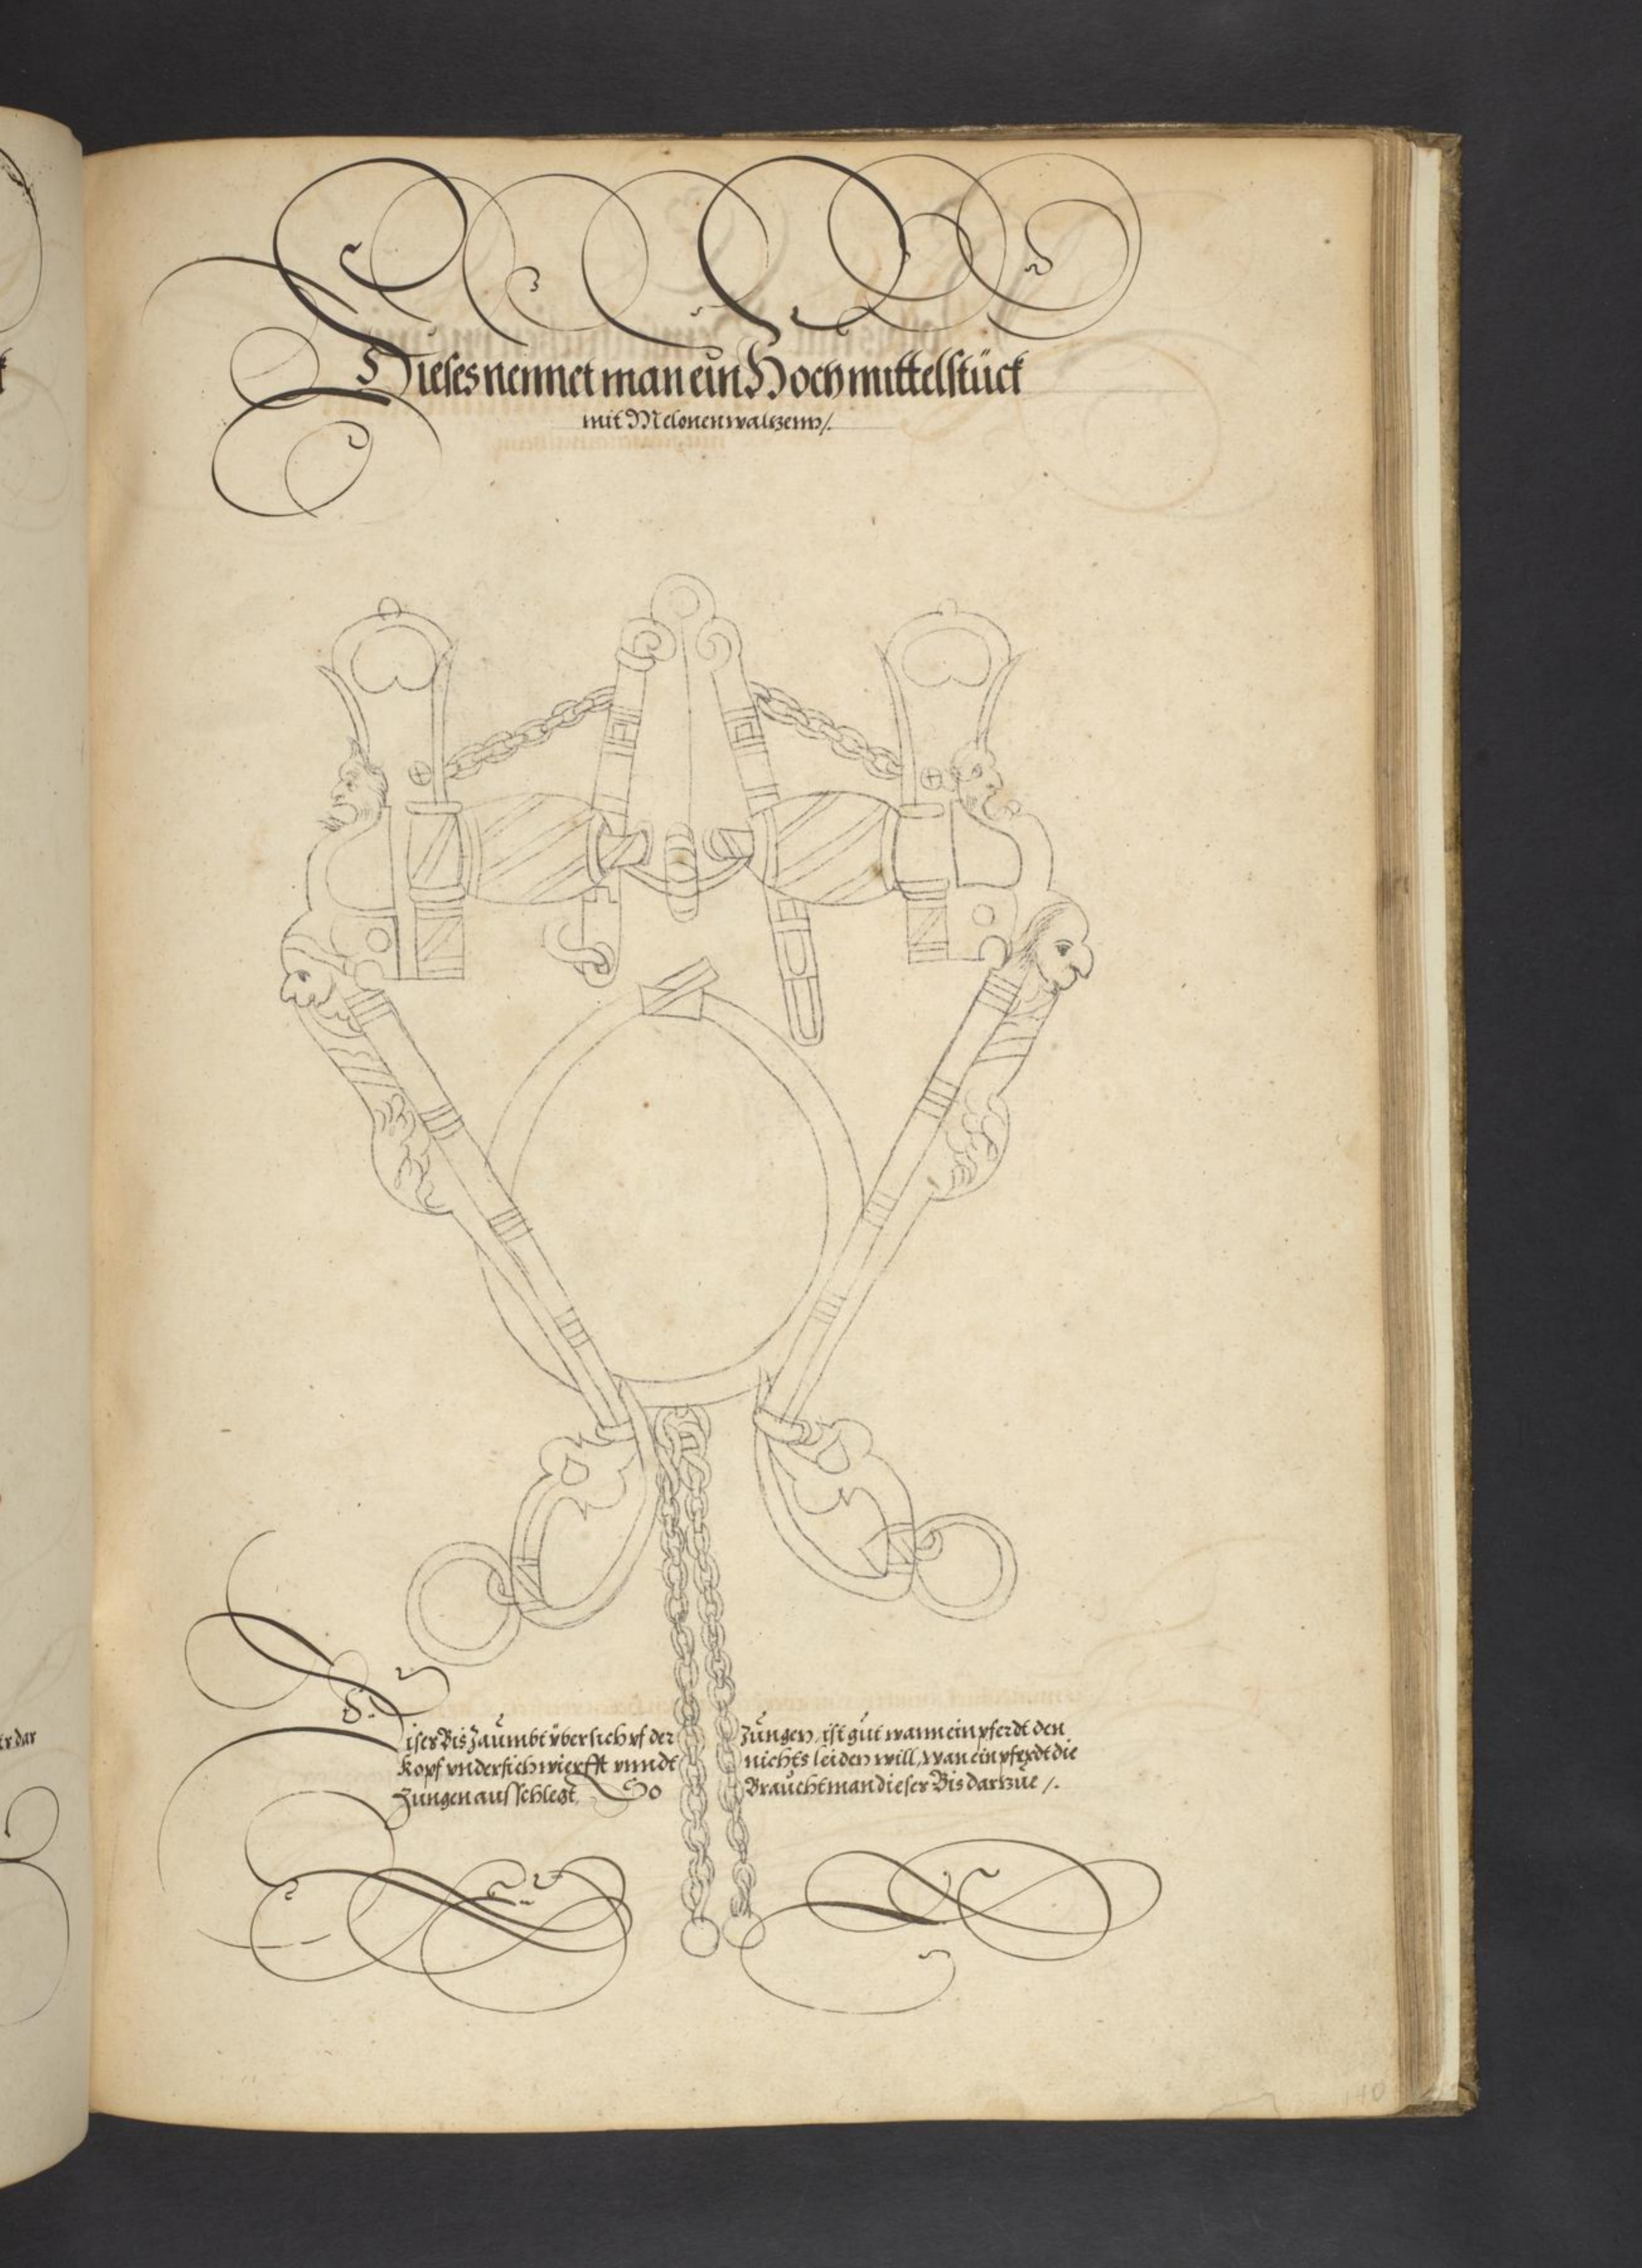 Dieses nennet man ein Hoch mittelstück
mit Melonen waltzenn /.
Dises Bis Zaümbt vber sich vf der Züngen, ist güt wann ein pferdt den
Kopf vnder sich wierfft vnndt nichts leiden will, wan ein pferdt die
Züngen aus schlegt, So Braücht man dieses Bis dartzüe /.
140